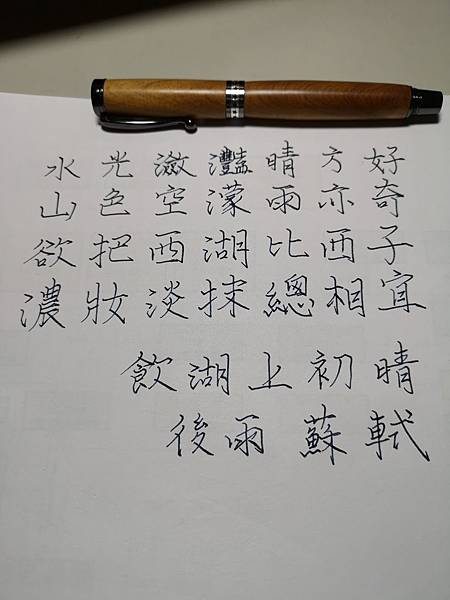 水光瀲灩晴方好
山色空濛雨亦奇
欲把西湖比西子
濃妝淡抹總相宜
飲湖上初晴
後雨 蘇軾